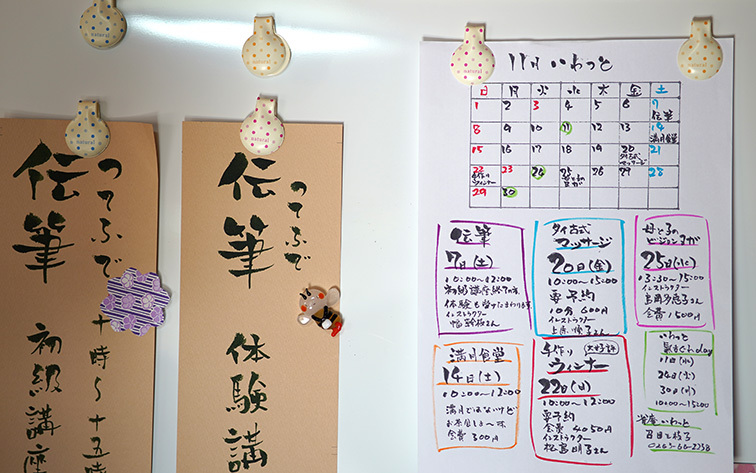 つてふで
伝筆
初級講座
十時~十五時
つてふで
伝筆
体験講
natural
natural
natural
natural
natural
11月 いわっと
日 月 火 水 木 金 土
1 2 3 4 5 6 7
伝筆
8 9 10 11 12 13 14
満月食堂
15 16 17 18 19 20 21
タイ古式
マッサージ
22 23 24 25 26 27 28
手作り
ウィンナー
29 30
伝筆
7日(土)
10:00~12:00
インストラクター
タイ古式
マッサージ
20日(金)
10:00~15:00
要予約
10分 600円
インストラクター
母と子の
ビジョンヨガ
25日(水)
13:30~15:00
インストラクター
会費 1500円
満月食堂
14日(土)
10:00~12:00
満月ではないけど
会費 300円
手作り 大好評
ウィンナー
22日(日)
10:00~12:00
要予約
会費 4050円
インストラクター
いわっと
気まぐれday
11日(水)
24日(火)
30日(月)
10:00~15:00
いわっと
0263-66-2258